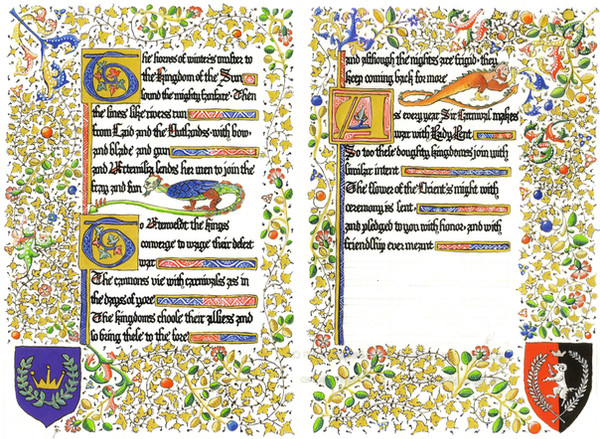 The of winters muster to
the Kingdom of the Sun
sound the mighty fanfare · Then
the lines like rivers run
from Caid and the Outlands · with bow
and blade · and gun
and Artemisia sends her men to join the
fray and fun
To Atenveldt the kings
converge to wage their
war
The cannons vie with carnivales as in
the days of yore
The kingdoms choose their allies and
so bring these to the fore
and although the nights are frigid · they
keep coming back for more
As every year Sir Carnival makes
war with Lady Lent
So too these doughty kingdoms join with
similar intent
The flower of the Orient's might with
ceremony is lent
and pledged to you with honor · and with
friendship ever meant